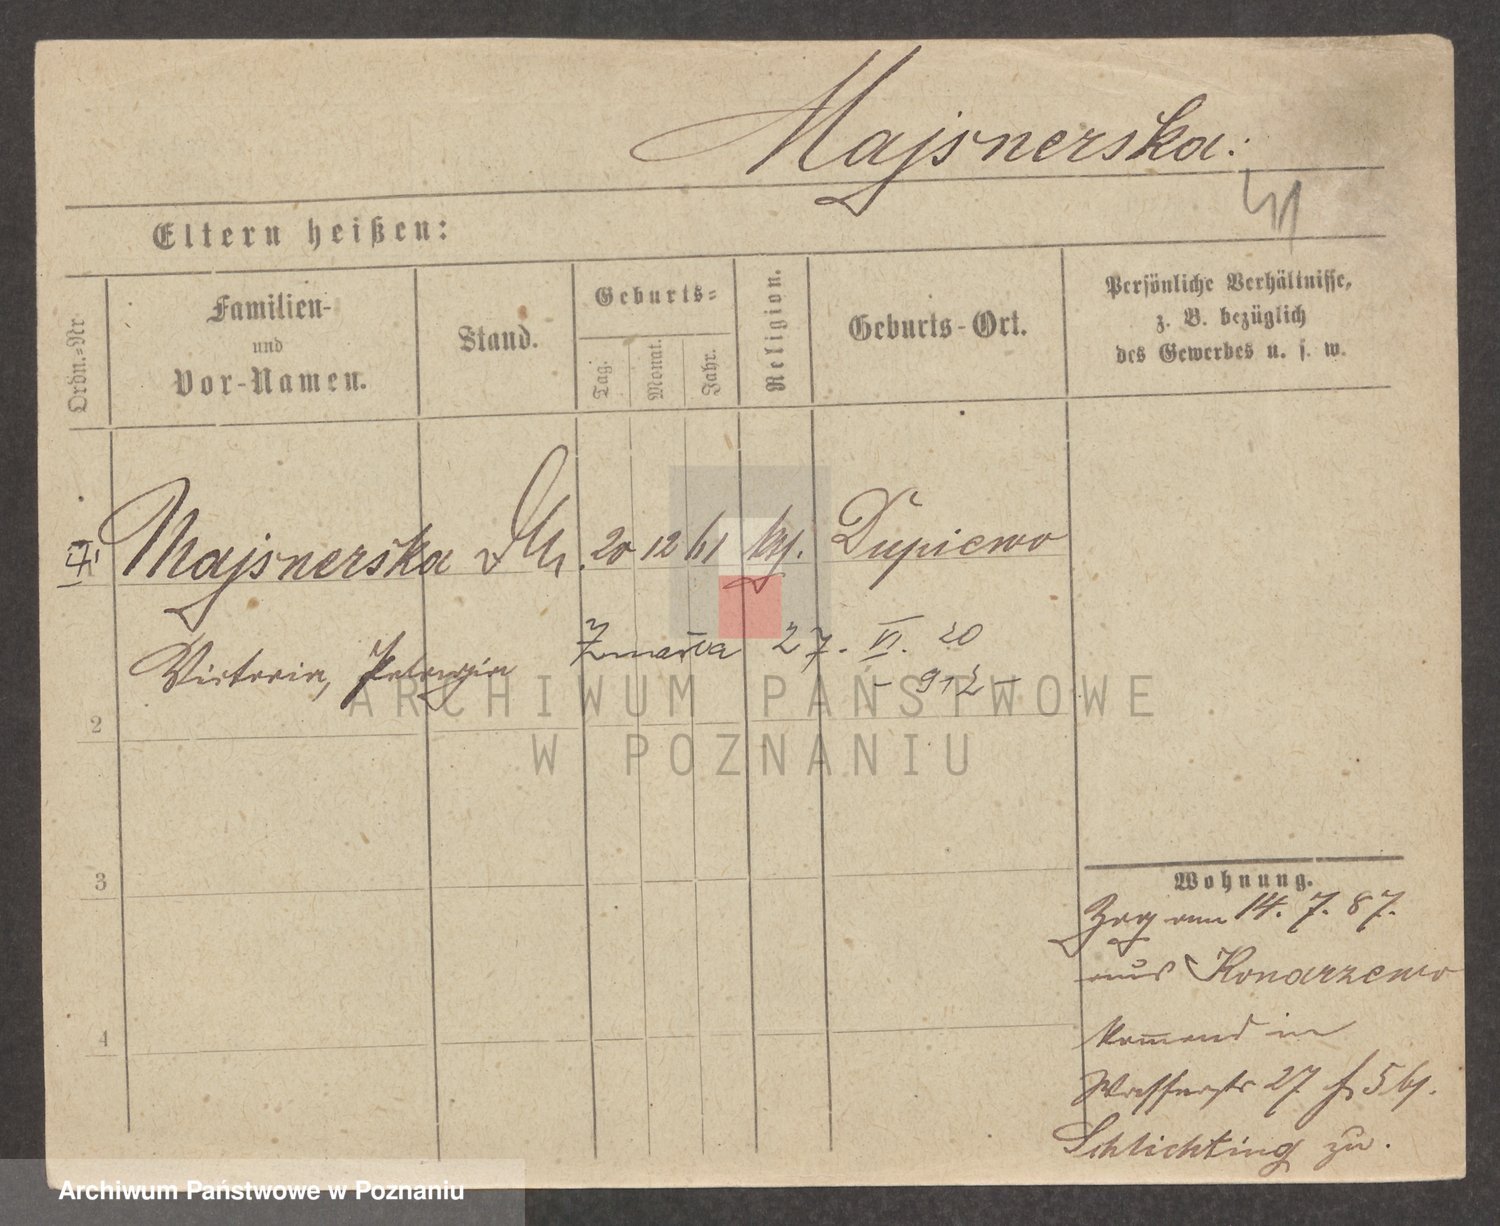 Majsnerska:
41
Eltern heißen:
Ordn.=Nr
Familien-
und
Vor-Namen.
Stand.
Geburts=
Tag.
Monat.
Jahr.
Religion.
Geburts-Ort.
Persönliche Verhältnisse,
z. B. bezüglich
des Gewerbes u. s. w.
Majsnerska 20 12 61 Dupiewo
Victoria, Pelagia
Zmarła 27. VI. 20
- 912 -
2
3
4
Wohnung.
Zog am 14. 7. 87.
aus Konarzewo
komend in
Wasserstr 27 bei
Schlichting zu.
ARCHIWUM PAŃSTWOWE
W POZNANIU
Archiwum Państwowe w Poznaniu